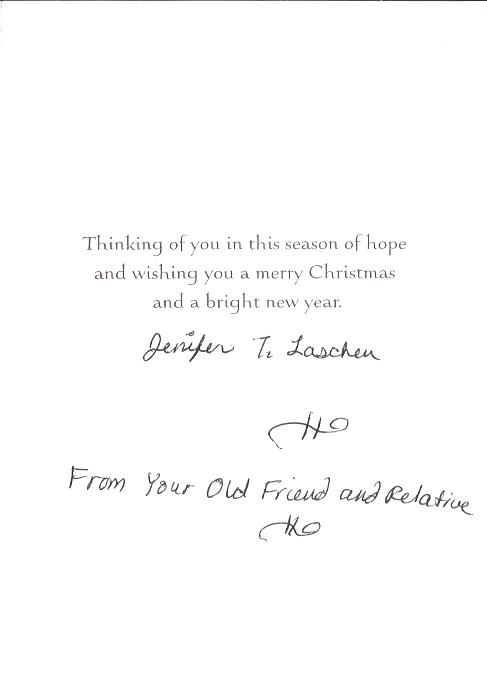 Thinking of you in this season of hope
and wishing you a merry Christmas
and a bright new year.
Jenifer T. Laschen
From Your Old Friend and Relative